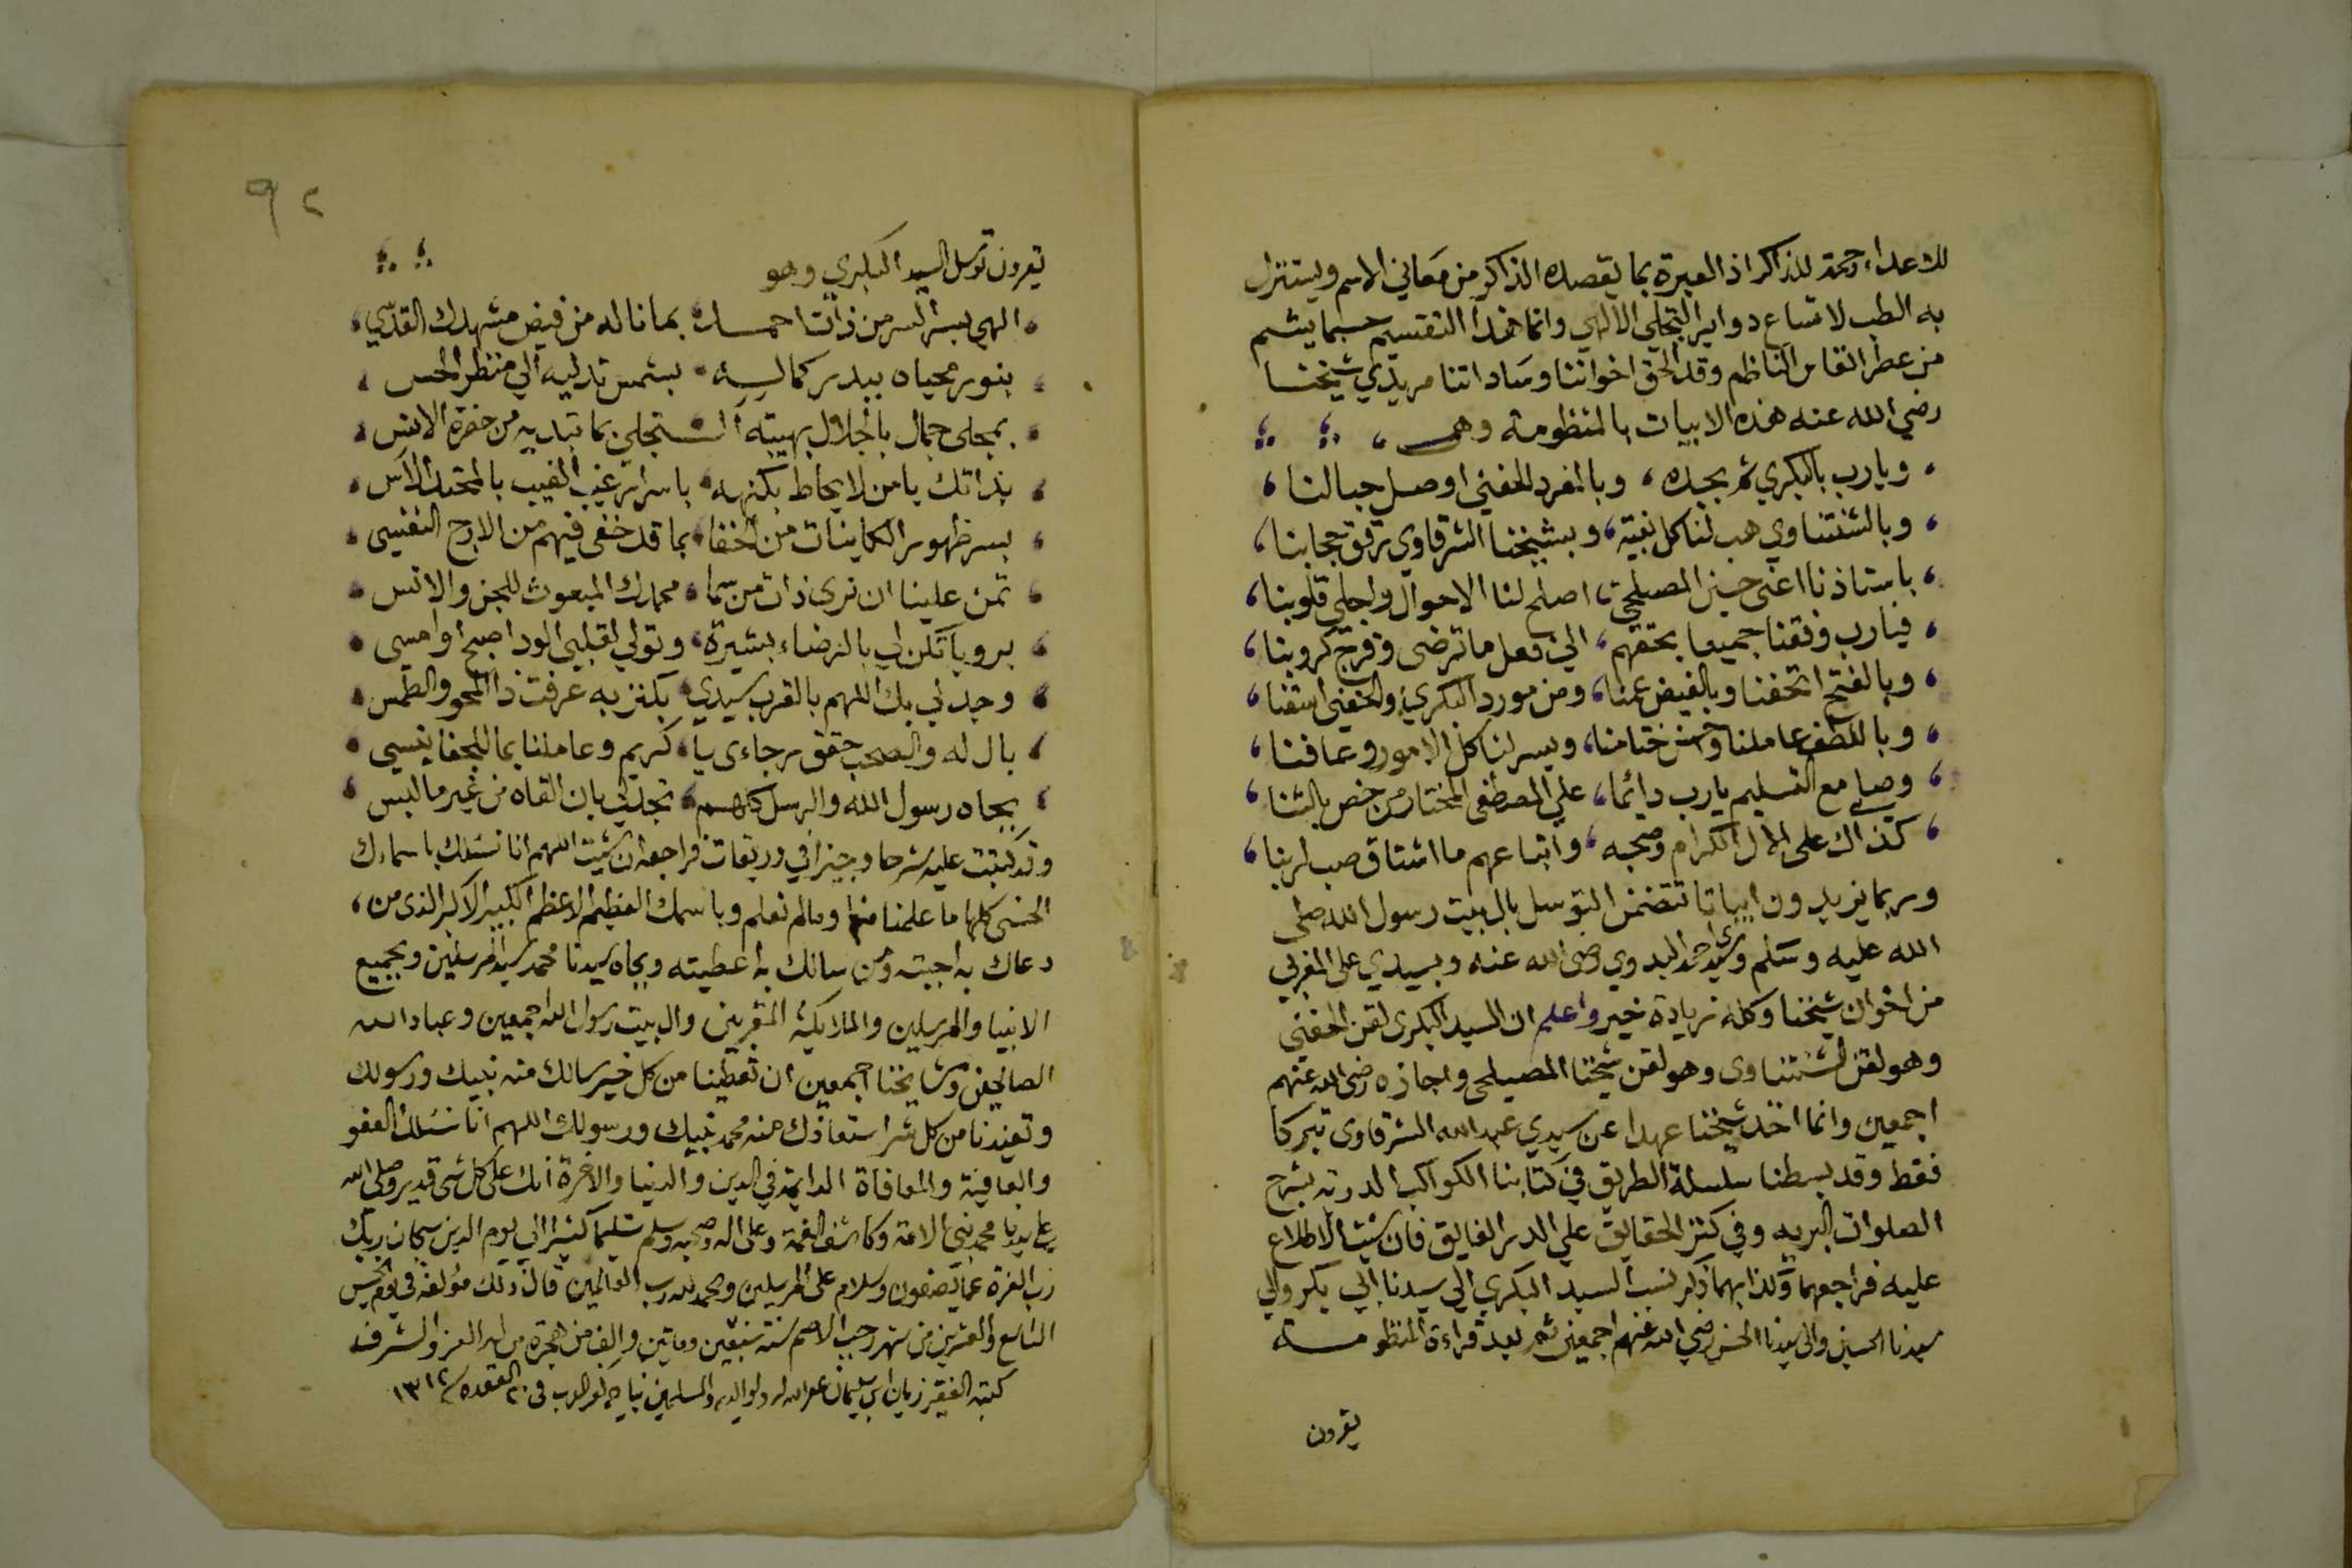 للاعداء رحمة للذاكر اذ العبرة بما يقصده الذاكر من معاني الاسم ويستنزل
به الطب لاتساع دواير التجلي الالهي وانما هذا التقسيم حسبما يشم
من عطر انفاس الناظم وقد الحق اخواننا وساداتنا مريدي شيخنا
رضي الله عنه هذه الابيات بالمنظومة وهى
ويارب بالبكري ثم بجده وبالمفرد الحفني اوصل حبالنا
وبالشنتناوي هب لنا كل بغيته وبشيخنا الشرقاوي ترقق حجابنا
باستاذنا اعنى حسين المصيلحي اصلح لنا الاحوال واجلي قلوبنا
فيارب وفقنا جميعا بحقهم الى فعل ما ترضى وفرج كروبنا
وبالفتح اتحفنا وبالفيض عمنا ومن مورد البكري والحفني اسقنا
وباللطف عاملنا واحسن ختامنا ويسر لنا كل الامور وعافنا
وصلي مع التسليم يارب دائما على المصطفى المختار من خص بالثنا
كذاك على الال الكرام وصحبه واتباعهم ما اشتاق صب لربنا
وربما يزيدون ابياتا تتضمن التوسل بال بيت رسول الله صلى
الله عليه وسلم وسيدى احمد البدوي رضى الله عنه وبسيدي على المغربي
من اخوان شيخنا وكله زيادة خير واعلم ان السيد البكرى لقن الحفني
وهو لقن الشنتناوى وهو لقن شيخنا المصيلحى واجازه رضى الله عنهم
اجمعين وانما اخذ شيخنا عهدا عن سيدي عبد الله الشرقاوى تبركا
فقط وقد بسطنا سلسلة الطريق في كتابنا الكواكب الدريه بشرح
الصلوات البريه وفي كنز الحقايق على الدر الفايق فان شئت الاطلاع
عليه فراجعهما وكذا بهما ذكر نسب السيد البكري الى سيدنا ابي بكر والى
سيدنا الحسين والى سيدنا الحسن رضي الله عنهم اجمعين ثم بعد قراءة المنظومة
يقرون
٩٢
يقرون توسل السيد البكري وهو
الهي بسر السر من ذات احمد بما ناله من فيض مشهدك القدسي
بنور محياه ببدر كماله بشمس تدليه الي منظر الحس
بمجلى جمال بالجلال بهيبته المتجلى بما تبديه من حضرة الانس
بذاتك يامن لا يحاط بكنهه باسرار غيب الغيب بالمحتد الآس
بسر ظهور الكاينات من الخفا بما قد خفى فيهم من الارج النفيسى
تمن علينا ان نرى ذات من سما محمدك المبعوث للجن والانس
برويا تكن لي بالرضاء بشيرة وتولي لقلبي الود اصبح اوامسى
وجد لي بك اللهم بالقرب سيدي بكنز به عرفت ذا المحو والطمس
بال له والصحب حقق رجاءى يا كريم وعاملنا بما للجفا ينسى
بجاه رسول الله والرسل كلهم تجلت بان القاه من غير ما لبس
وقد كتبت عليه شرحا وجيزا في وريقات فراجعه ان شئت اللهم انا نسئلك باسماءك
الحسنى كلها ما علمنا منها ومالم نعلم وباسمك العظيم الاعظم الكبير الاكبر الذى من
دعاك به اجبته ومن سالك به اعطيته وبجاه سيدنا محمد سيد المرسلين وبجميع
الانبيا والمرسلين والملايكة المقربين وال بيت رسول الله اجمعين وعباد الله
الصالحين ومشايخنا اجمعين ان تعطينا من كل خير سالك منه نبيك ورسولك
وتعيذنا من كل شر استعاذك منه محمد نبيك ورسولك اللهم انا نسئلك العفو
والعافية والمعافاة الدايمة في الدين والدنيا والاخرة انك على كل شى قدير وصلى الله
على سيدنا محمد نبي الامة وكاشف الغمة وعلى اله وصحبه وسلم تسليما كثيرا الي يوم الدين سبحان ربك
رب العزة عما يصفون وسلام على المرسلين والحمد لله رب العالمين قال ذلك مؤلفه في يوم الخميس
التاسع والعشرين من شهر رجب الاصم سنة سبعين وماتين والف من هجرة من له العز والشرف
كتبه الفقير زيان ابن سليمان غفر الله له ولوالديه والمسلمين في ٢٠ القعده سنة ١٣١٢